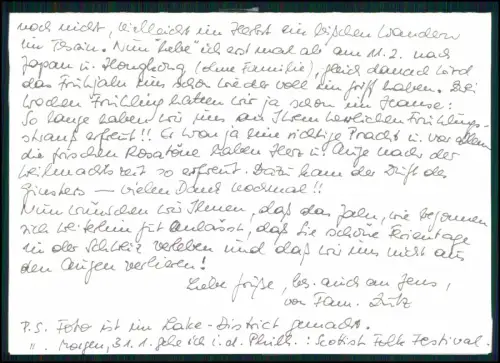 noch nicht, vielleicht im Herbst ein bißchen Wandern
im Tessin. Nun "hebe" ich erst mal ab am 11.2. nach
Japan u. Hongkong (ohne Familie), gleich danach wird
das Frühjahr uns schon wieder voll im Griff haben. Drei
Wochen Frühling hatten wir ja schon im Hause:
So lange haben wir uns an Ihrem herrlichen Frühlings-
strauß erfreut!! Es war ja eine richtige Pracht u. vor allem
die frischen Rosatöne haben Herz u. Auge nach der
Weihnachtszeit so erfreut. Dazu kam der Duft des
Ginsters – vielen Dank nochmal!!
Nun wünschen wir Ihnen, daß das Jahr, wie begonnen
sich weiterhin gut anlässt, daß Sie schöne Ferientage
in der Schweiz verleben und daß wir uns nicht aus
den Augen verlieren!
Liebe Grüße, bes. auch an Jens,
von Fam.
P.S. Foto ist im Lake-District gemacht.
". Morgen, 31.1. gehe ich i.d. Philh.: Scotish Folk Festival.